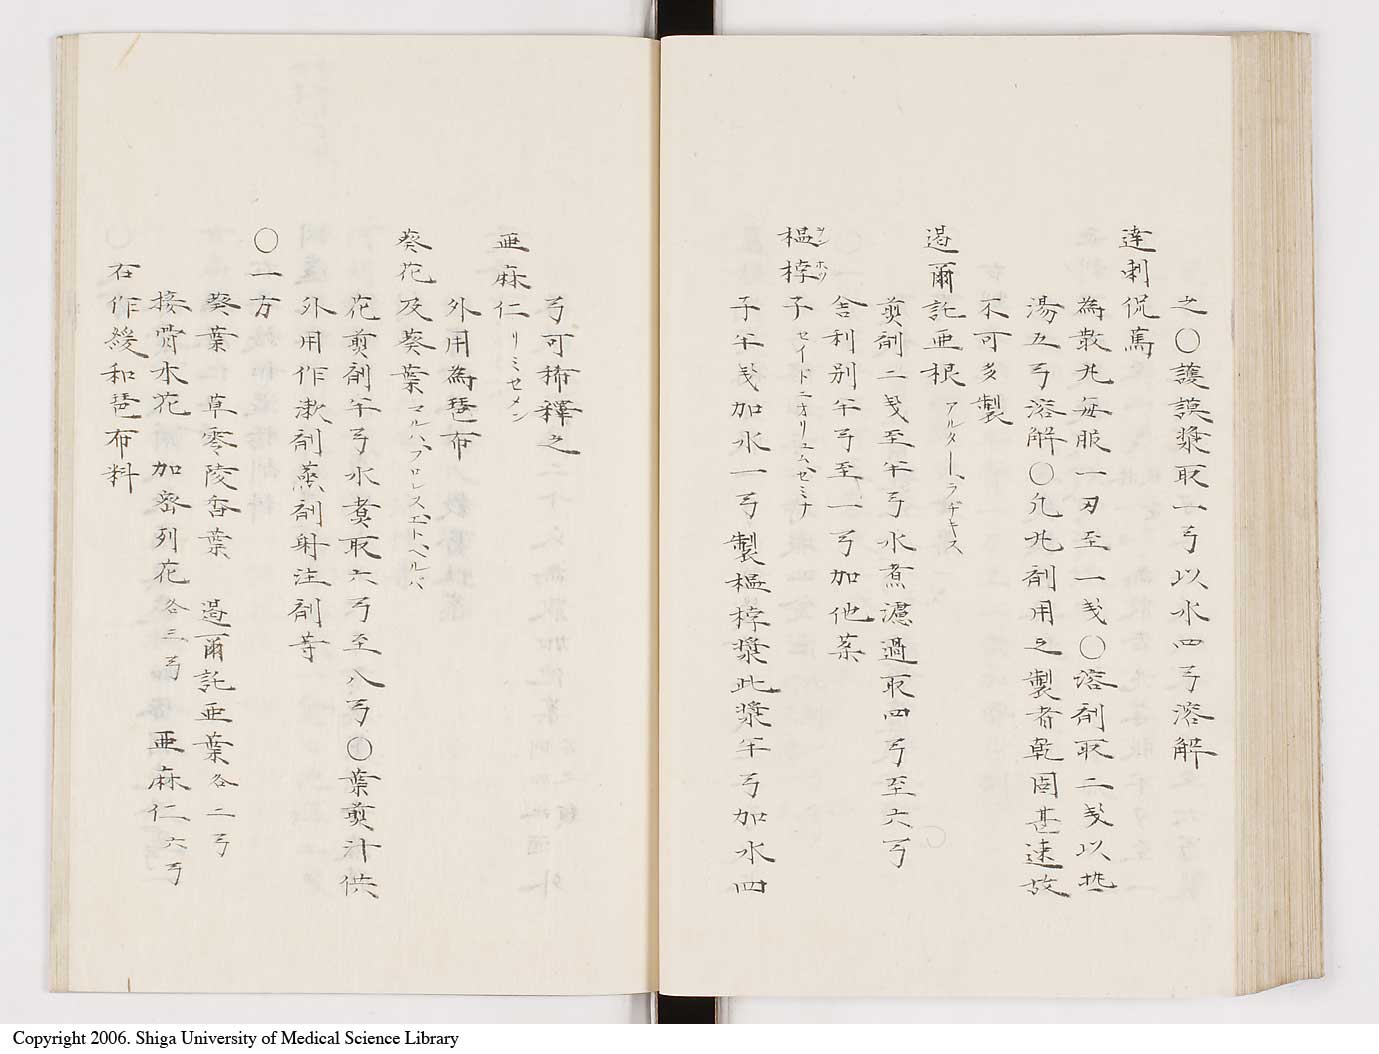 之〇護謨漿取一弓以水四弓溶解
達刺侃篤
為散丸毎服一刃至一戔〇溶剤取二戔以热
湯五弓溶解〇凢丸剤用之製者乾固甚速故
不可多製
遏爾託亜根アルターーラヂキス
煎剤二戔至半弓水煮濾過取四弓至六弓
舎利別半弓至一弓加他薬
榲桲子セイドニオリュムゼミナ
オンホツ
子半戔加水一弓製榲桲漿此漿半弓加水四
弓可稀釋之
亜麻仁リミセメン
外用為琶布
葵花及葵葉マルハ、フロレスエトヘルバ
花煎剤半弓水煑取六弓至八弓〇葉煎汁供
外用作漱剤蒸剤射注剤等
〇一方
葵葉 草零陵香葉 遏爾託亜葉各二弓
接骨木花 加密列花各三弓 亜麻仁六弓
右作緩和琶布料
Copyright 2006. Shiga University of Medical Science Library